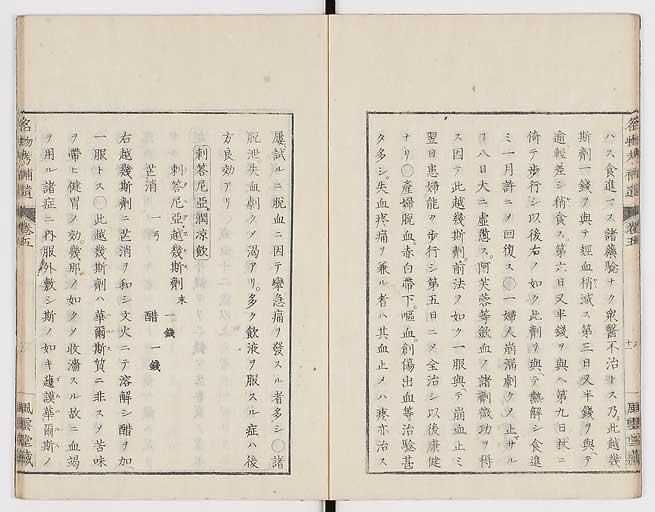 ハス食進マス諸藥驗ナク衆醫不治トス乃此越幾
斯劑一錢ヲ與テ經血稍減ス第三日又半錢ヲ與テ
逾輕差シ稍食ス第六日又半錢ヲ與ヘ第九日杖ニ
倚テ歩行シ以後右ノ如ク此劑ヲ與テ熱解シ食進
ミ一月許ニメ回復ス○一婦人崩漏劇クメ止ザル
ヿ八日大ニ虚憊ス阿芙蓉等斂血ノ諸劑微功ヲ得
ス因テ此越幾斯劑前法ノ如ク一服與テ崩血止ミ
翌日患婦能ク歩行シ第五日ニメ全治シ以後康健
ナリ○産婦脱血赤白帶下嘔血創傷出血等治驗甚
タ多シ失血疼痛ヲ兼ル者ハ其血止メハ疼亦治ス
風雲堂藏
屢試ルニ脱血ニ因テ攣急痛ヲ發スル者多シ○諸
脱泄失血劇クメ渴アリ多ク飲液ヲ服スル症ハ後
方良効アリ
刺答尼亞潤凉飲
刺答尼亞越幾斯劑末 一錢
芒消 一丐 醋 一錢
右越幾斯劑ニ芒消ヲ和シ文火ニテ溶解シ醋ヲ加
一服トス○此越幾斯劑ハ華爾斯質ニ非スメ苦味
ヲ帶ヒ健胃ノ効幾那ノ如クメ收濇スル故ニ血竭
ヲ用ル諸症ニ内服外敷シ斯ノ如キ護謨華爾斯ノ
名物考補遺 卷五
風雲堂藏